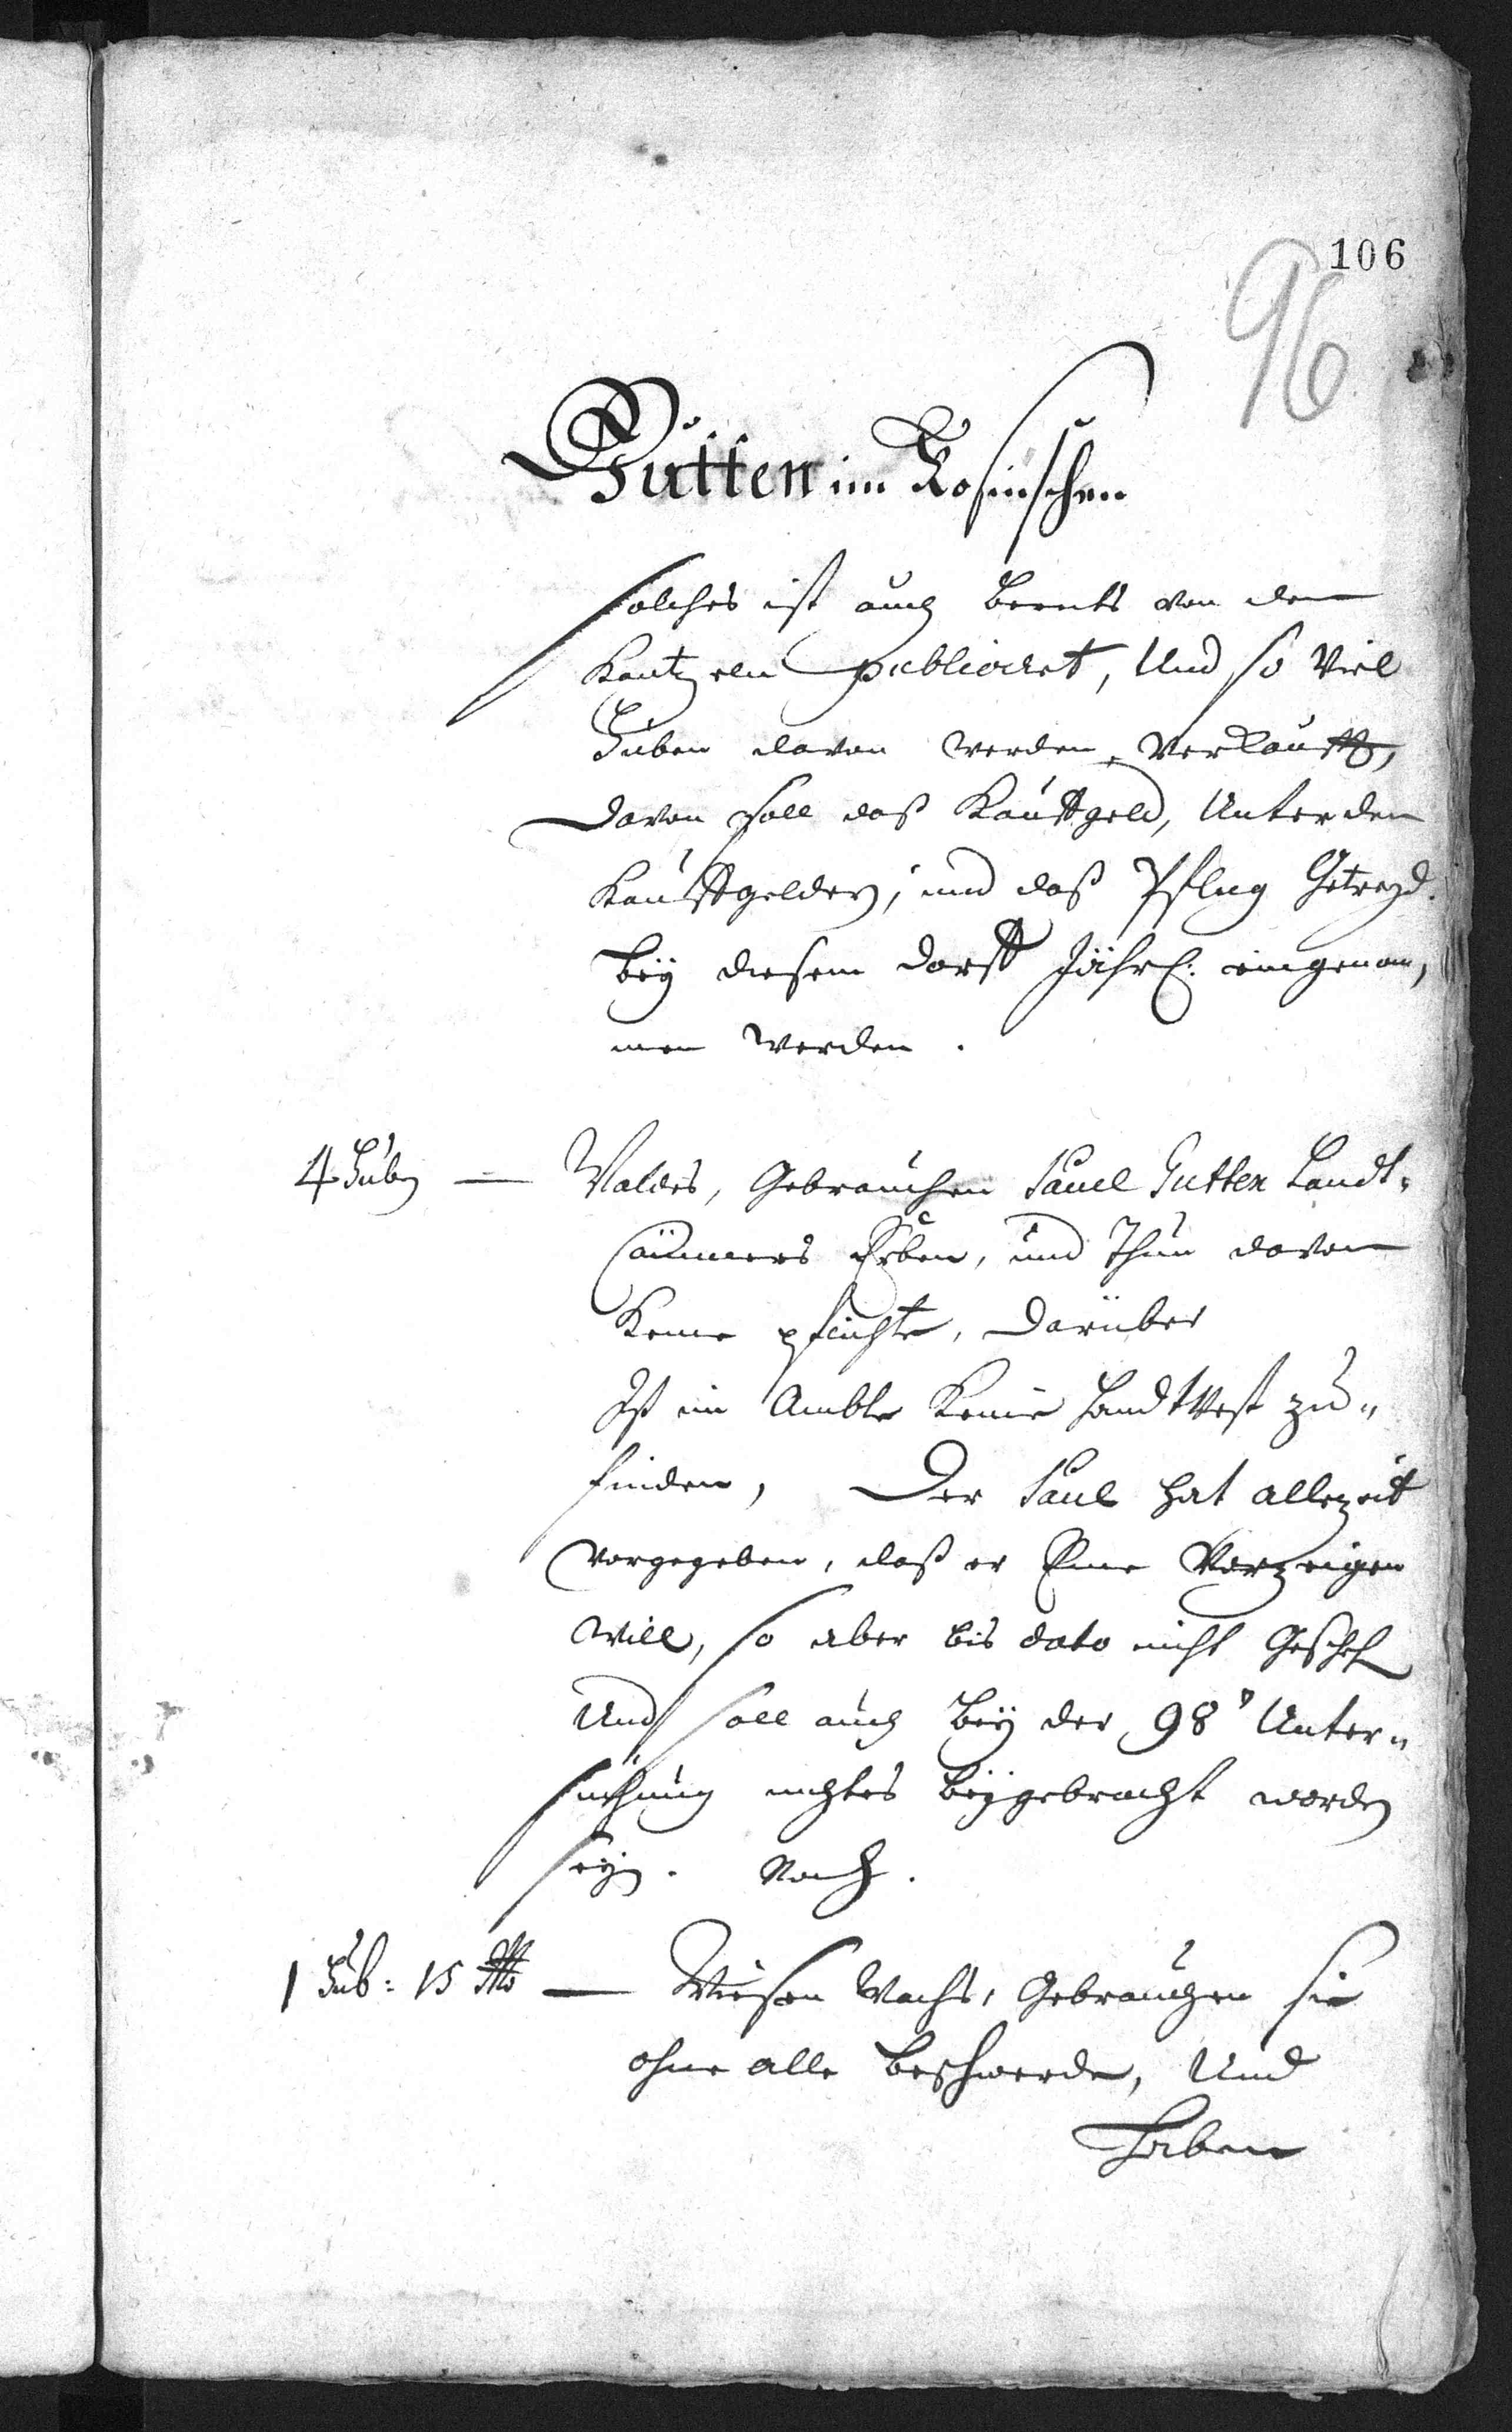 106
96
Gutten im Rosinschen
solches ist auch bereits von den
Cantzeln publiciret, Und so Viel
Huben davon werden verkaufft,
Davon soll daß Kauffgeld, Unter den
Kauffgeldern, und daß Pflug Getreyd.
bey diesem Dorff Jährl: eingenom,
men werden.
4 Huben — Waldes, Gebrauchen Paul Gutten Landt-
Cämmers Erben, und Thun davon
Keine pflichte, Darüber
Ist im Ambte Keine Handtvest zu„
finden, Der Paul hat allezeit
vorgegeben, daß er Eine Vorzeigen
will, so aber bis dato nicht Geschehen
Und soll auch bey der 98 Unter„
suchung nichtes beygebracht worden
seyn. Noch.
1 Hub: 15 — Wiesen Wachs, Gebrauchen sie
ohne alle beschwerde, Und
Haben